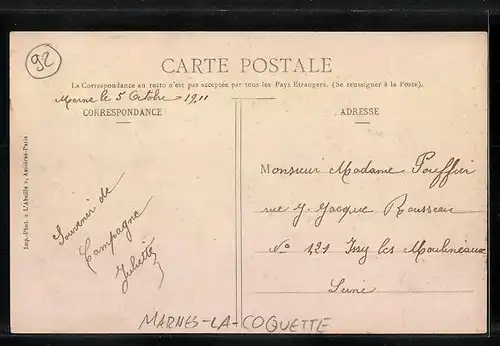 92
CARTE POSTALE
La Correspondance au recto n'est pas acceptée par tous les Pays Etrangers. (Se renseigner à la Poste).
Marne le 5 Octobre 1911
CORRESPONDANCE
ADRESSE
Imp.-Phot. « L'Abeille », Asnières-Paris
Souvenir de
Campagne
Juliette
Monsieur Madame Pouffier
rue J. Jacque Rousseau
No 121 Issy les Moulineaux
Seine
MARNES-LA-COQUETTE